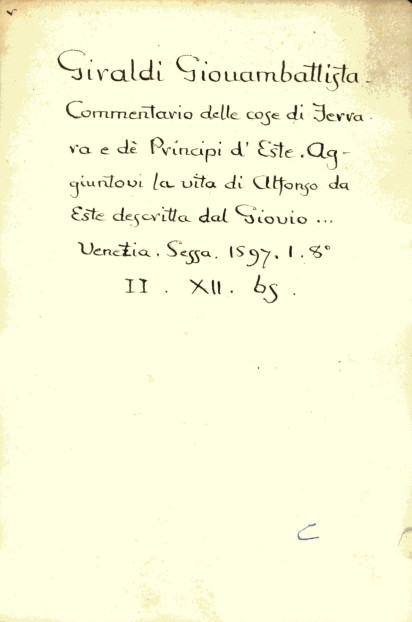 Giraldi Giouambattista.
Commentario delle cose di Ferra.
ra e dè Principi d' Este. Ag-
giuntovi la vita di Alfonso da
Este descritta dal Giovio ...
Venezia. Sessa. 1597. 1. 8°
II . XII . bs .
C